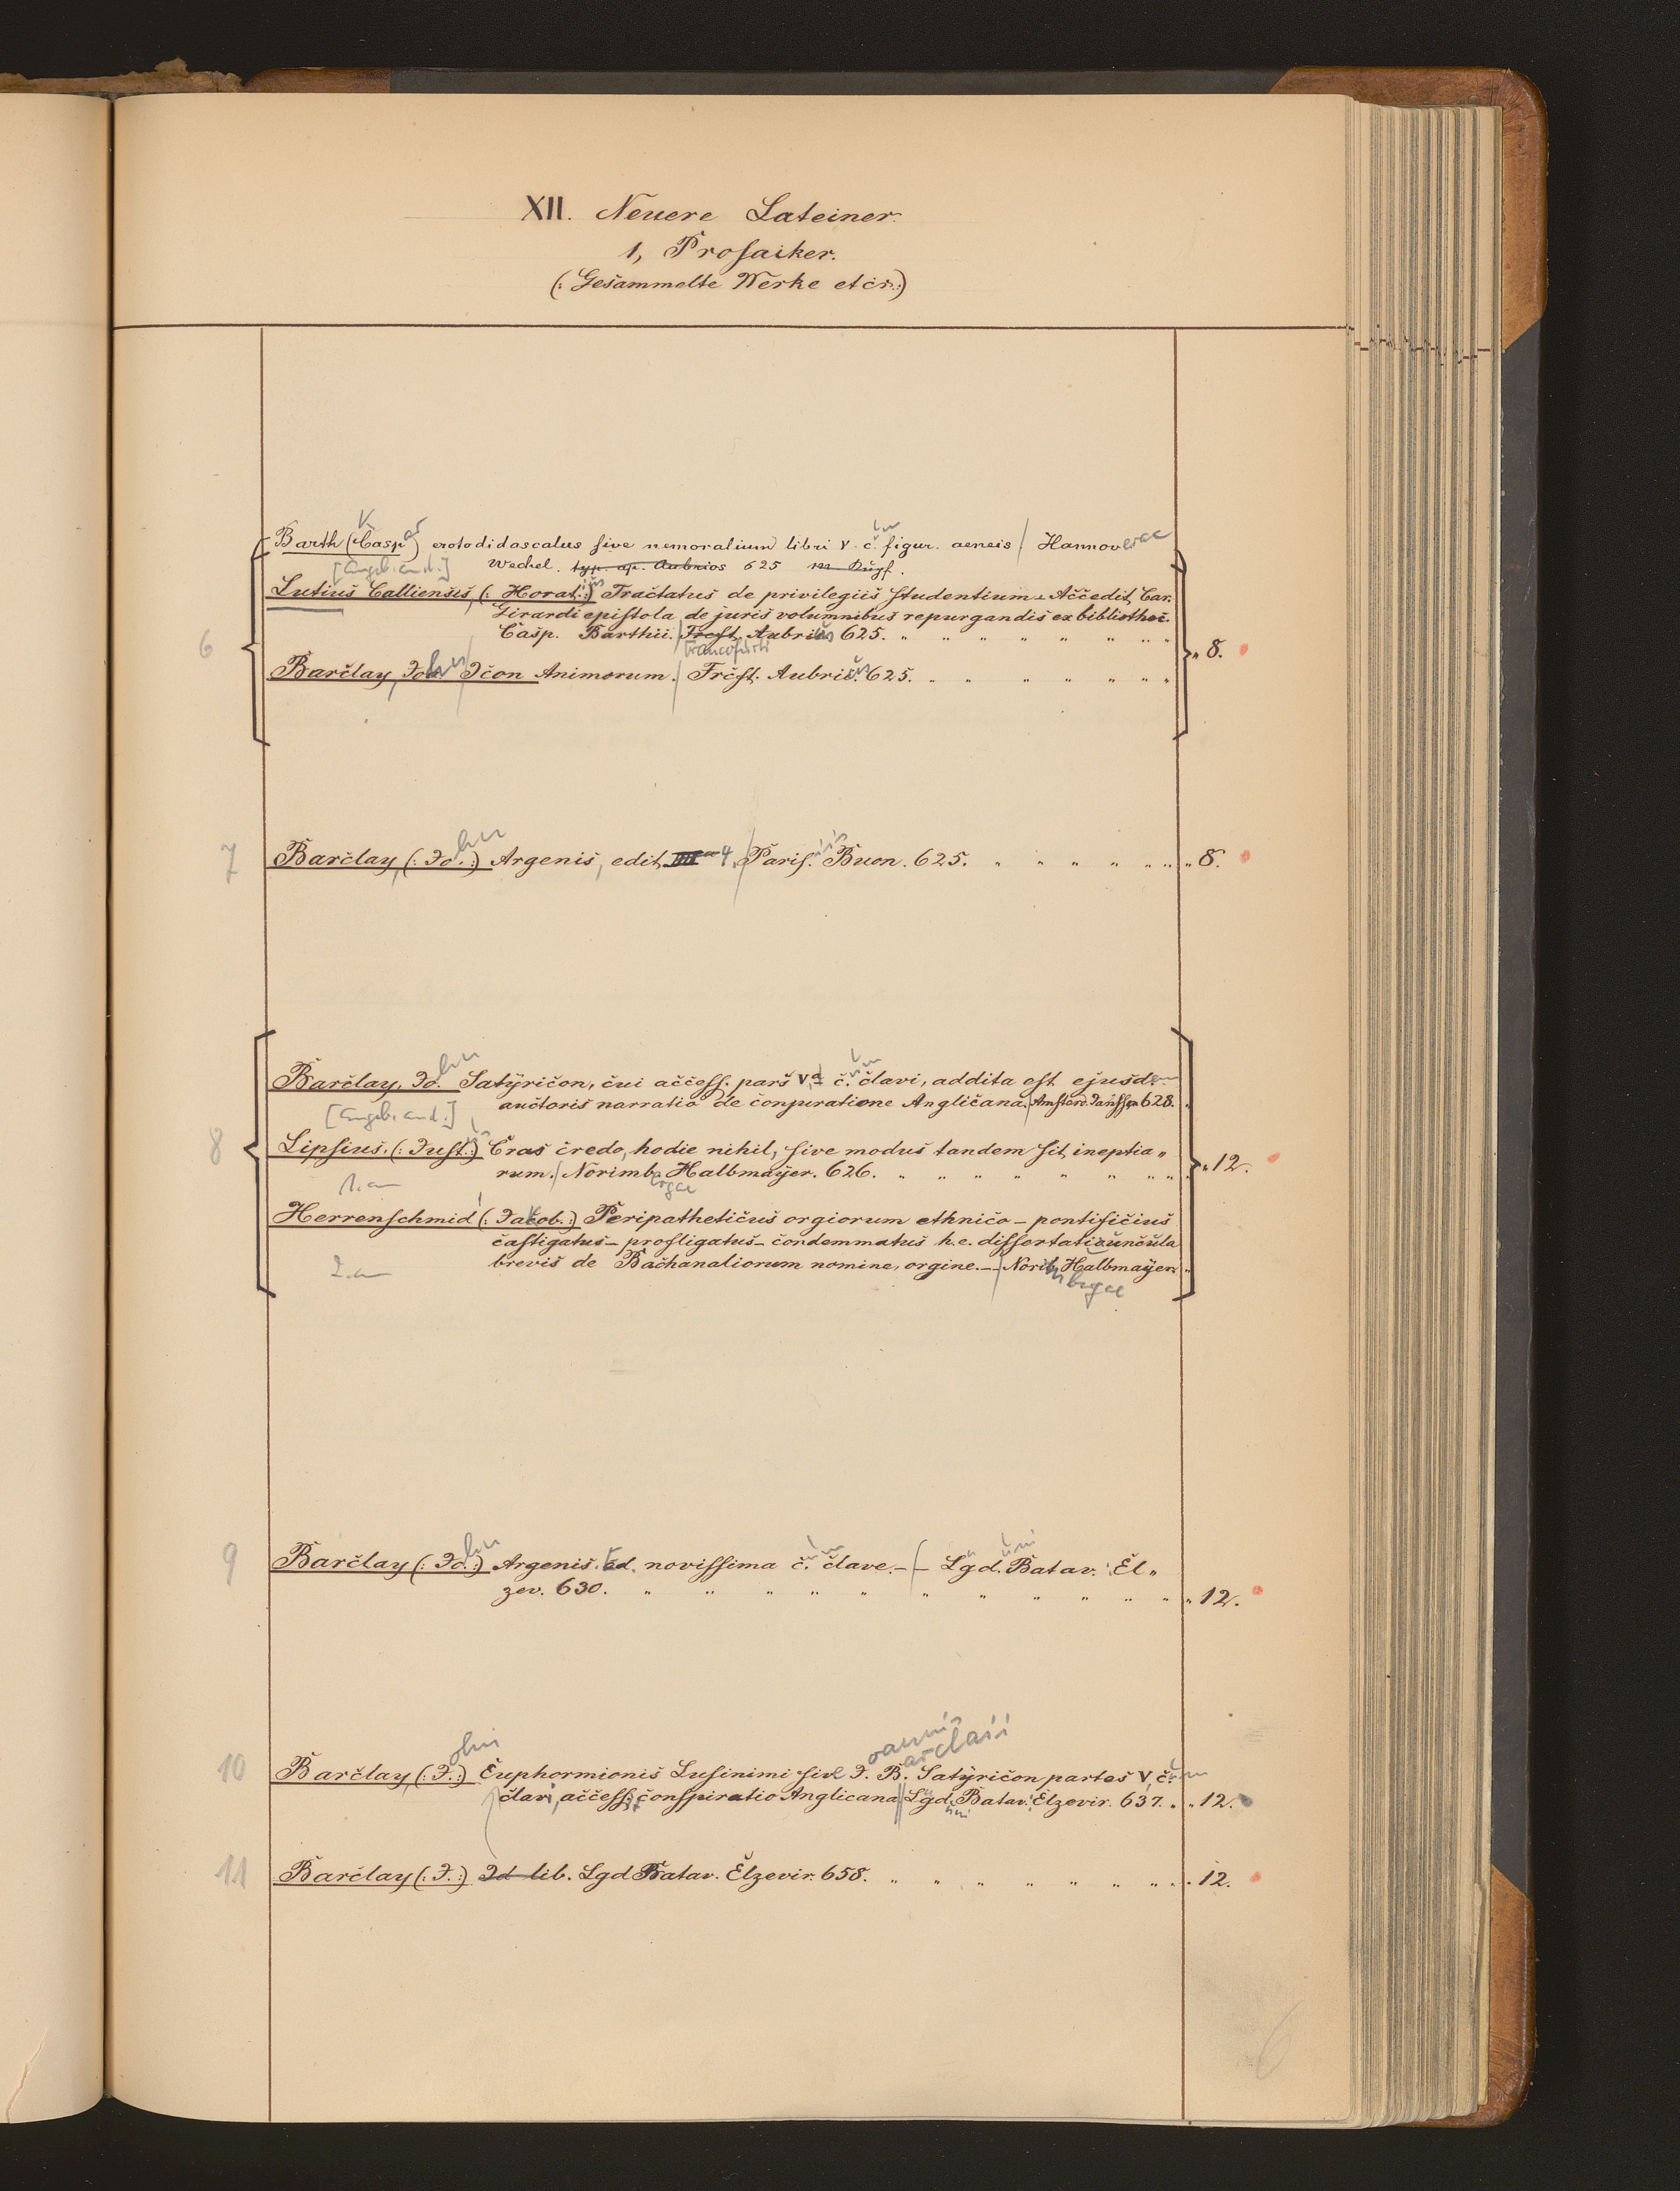 XII. Neuere Lateiner.
1, Prosaiker.
(: Gesammelte Werke etcr.:)
Barth (Casp ar) erotodidascalus sive nemoralium libri V. c. um figur. aeneis / Hannov erae
[Angeb. and.] Wechel. typ. ap. Aubrios 625
Lutius Calliensis, (: Horat. ius :) Tractatus de privilegiis studentium. Accedit Car.
Girardi epistola de juris volumnibus repurgandis ex bibliothec.
6 Casp. Barthii. / Frcft. Aubrius 625. „ 8.
Francofurti
Barclay, Joh n / Icon Animorum. / Frcft. Aubrius 625.
7 Barclay, (: Jo. hn :) Argenis, edit IIII 4. / Paris. iis Buon. 625. „ 8.
Barclay, Jo. hn Satyricon, cui access. pars V.a c. um clavi, addita est ejusd. em
auctoris narratio de conjuratione Anglicana. / Amsterd. Jansson 628.
[Angeb. and.]
8 Lipsius. (: Just. us :) Cras credo, hodie nihil, sive modus tandem sit, ineptia„ „ 12.
rum. / Norimb. ergae Halbmayer. 626.
1. an
Herrenschmid (: Jacob. :) Peripatheticus orgiorum ethnico – pontificius
castigatus – profligatus – condemmatus h. e. dissertatiuncula
brevis de Bachanaliorum nomine, orgine. – / Norib. mbergae Halbmayer.
2. an
9 Barclay (: Jo. hn :) Argenis. Ed. novissima c. um clave. – / – Lgd. uni Batav.: El„
zev. 630. „ 12.
oannis arclaii
10 Barclay, (: J. ohn :) Euphormionis Lusinimi sive J. B. Satyricon partes V, c. um
clavi, access. conspiratio Anglicana. // Lgd. uni Batav.: Elzevir. 637. „ 12.
11 Barclay (: J. :) Id lib. Lgd Batav. Elzevir. 658. 12.
6